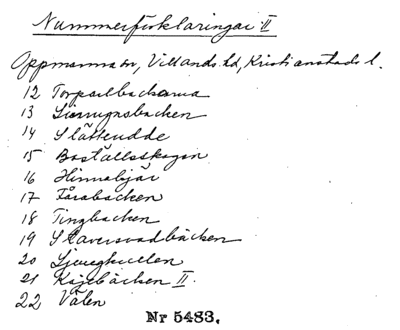 Nummerförklaringar II
Oppmanna sn, Villands hd, Kristianstads l.
12 Torpselbackarna
13
14 Slättudde
15 Boställsskogen
16
17 Fårabacken
18 Tingbacken
19 Staversvadbäcken
20 Ljungkullen
21 Kägebäcken II.
22 Vålen
Nr 5483.